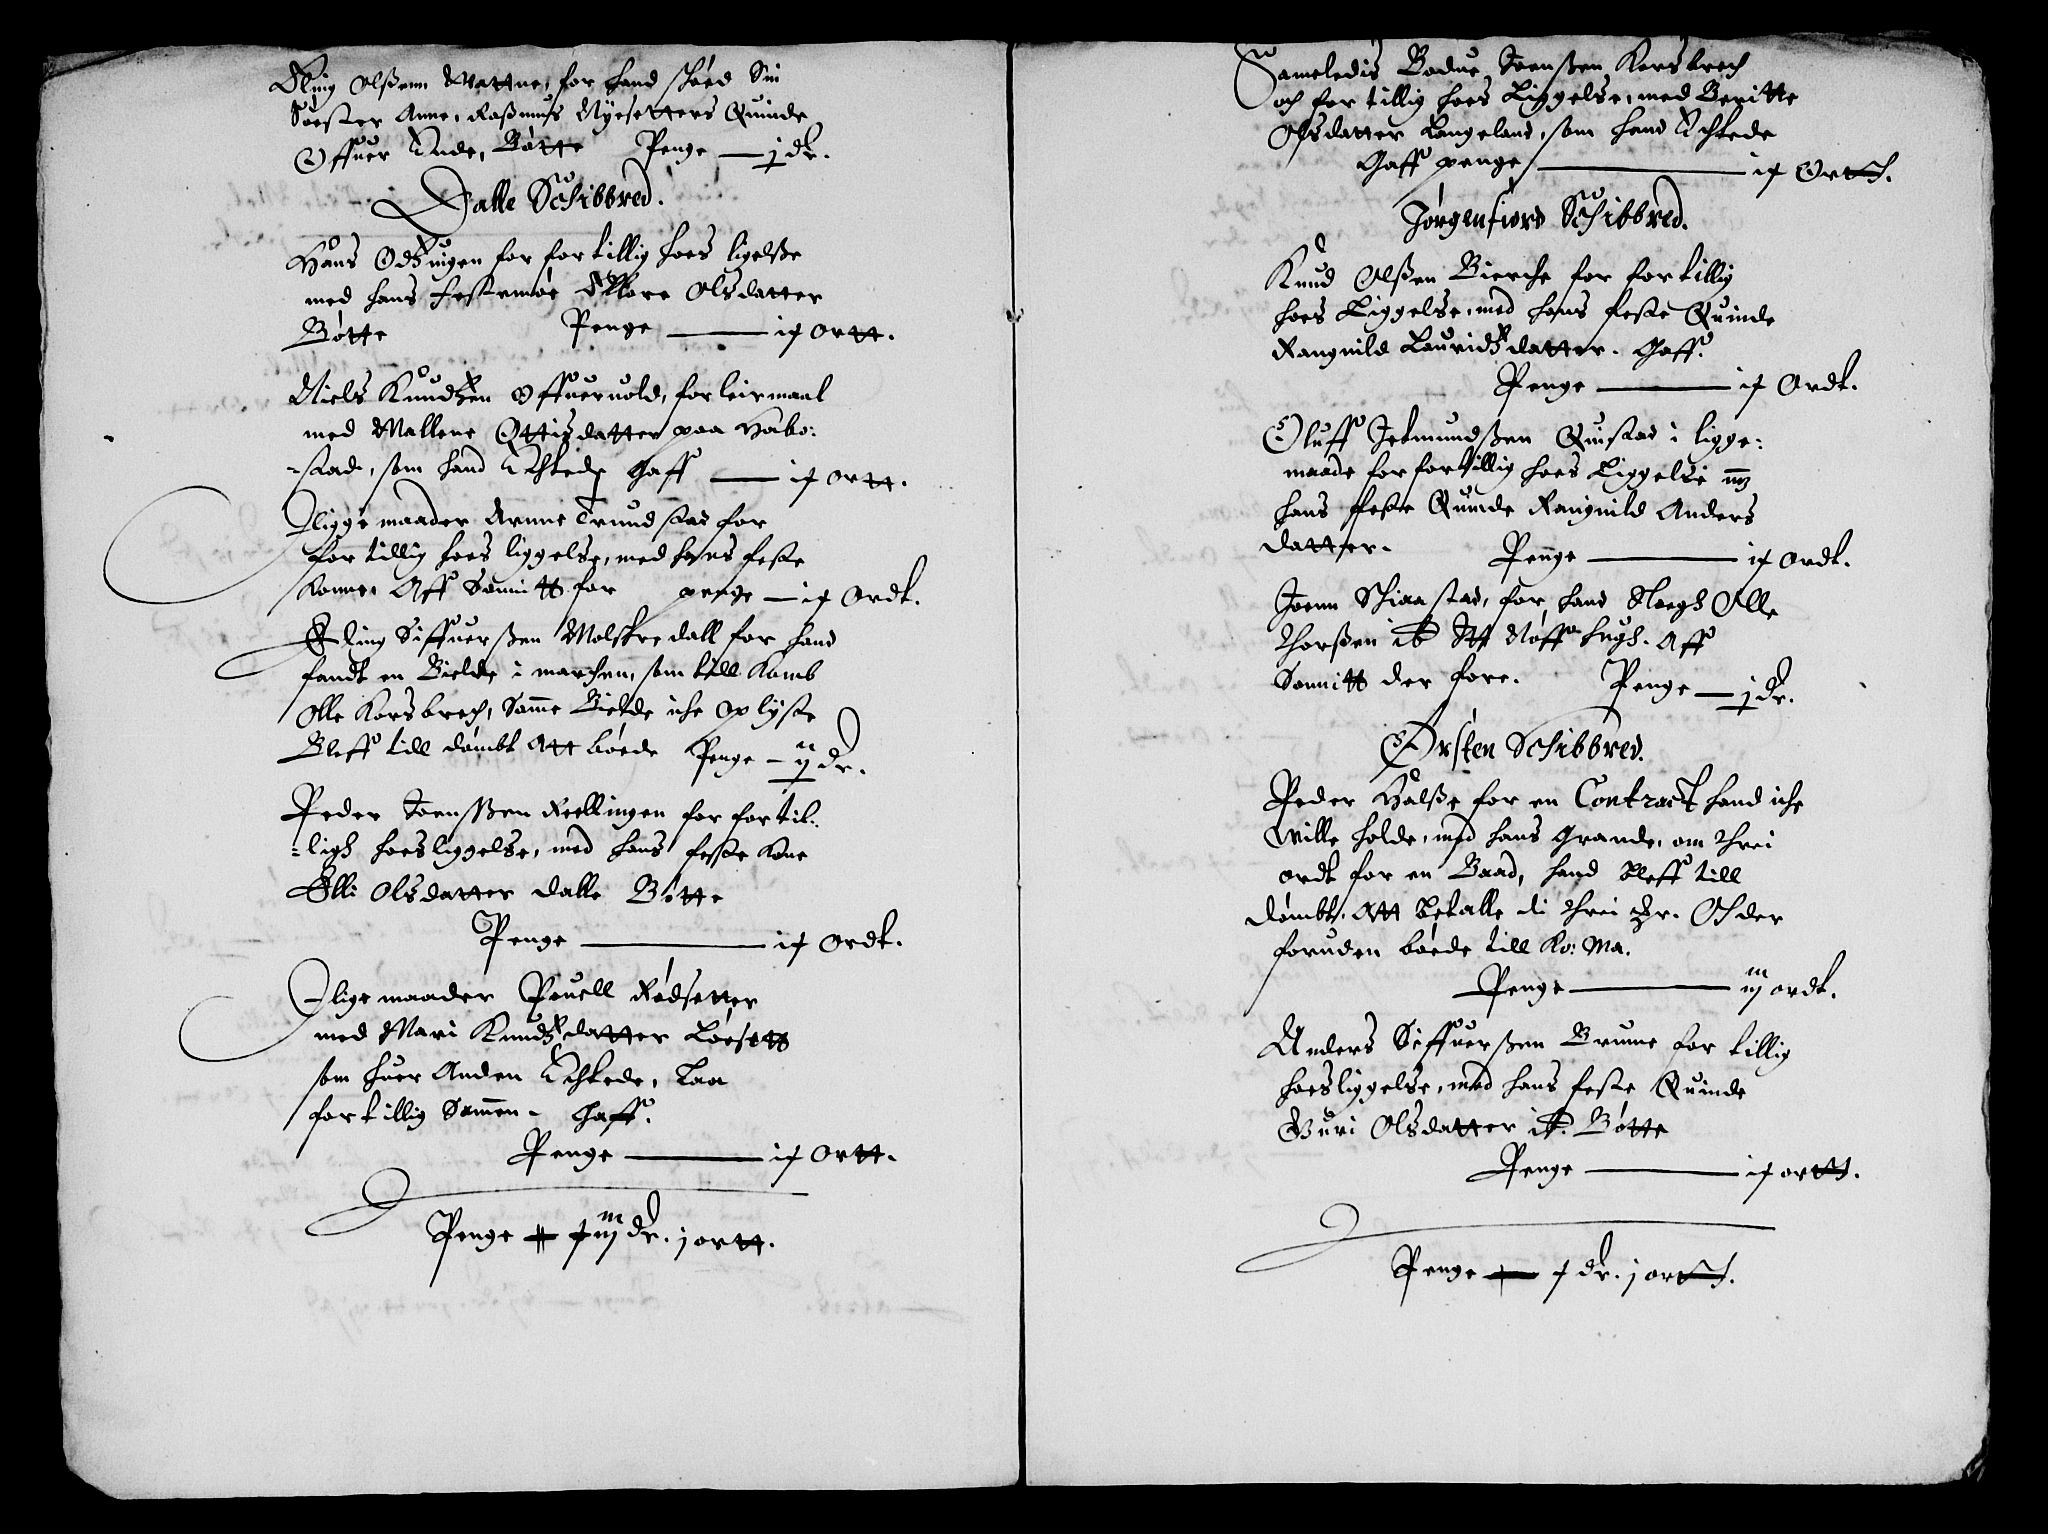 Elling Olßenn Mattne, for hand schød Sin
Søester Anne, Raßmus Myesetters Quinde
Offuer Ende, Bøtte Penge — j dr.
Dalle Schibbred.
Hans Odzingen for fortillig hoes ligelße
med hans festermøe Ellore Olsdatter
Bøtte Penge — ij ortt.
Niels Knudzen Offueruold, for leirmaal
med Mallene Ottisdatter paa Habo:
-stad, som hand Echtede gaff — ij ortt.
Iligge maader Arnne Trundstad for
fortillig hoes liggelse, med hans feste
konne, Aff Sonnitt for penge — ij Ordt.
Elling Siffuerßen Molskredall for hand
fandt en Bielde i marchen, som till komb
Olle Korsbrech, Samme Bielde iche oplyste
Bleff till dømbt Att bøede Penge — ij dr.
Peder Joensßen Reellingen for fortil:
-ligh hoesliggelse, med hans feste kone
Elli Olsdatter Dalle Bøtte
Penge — ij Ordt.
Ilige maader Pouell Rødsetter
med Mari Knudzdatter Løesett
som huer Anden Echtede, Laa
fortillig Samen - gaff.
Penge — ij Ortt.
Penge — f iij dr. j ortt.
Sameledis Bodue Joensßen Korsbrech
och for tillig hoes Liggelse, med Beritte
Olsdatter Langeland, som hand Echtede
Gaff penge — ij Ortt.
Jørgenfiord Schibbred.
Knud Olßen Bierche for fortillig
hoes Liggelse, med hans feste Quinde
Rangnild Lauridzdatter. Gaff.
Penge — ij Ordt.
Oluff Jetmundßen Quistad i ligge:
maade for fortillig hoes Liggelse
hans feste Quinde Rangnild Anders
datter. Penge — ij Ordt.
Joenn Schiaastad, for hand Slogh Olle
Thorßen it Nøffue hugh. Aff
Sonnitt der fore. Penge — j dr.
Ørsten Schibbred.
Peder Halße for en Contract hand iche
wille holde, med hans Grande, om threi
ordt for en Baad, hand bleff till
dømbt. Att betalle di threi Och der
foruden bøede till Ko: Ma.
Penge — iij ordt.
Anders Siffuerßen Brunne for tillig
hoesliggelse, med hans feste Quinde
Guri Olsdatter Bøtte
Penge — ij ortt.
Penge — f dr. j ortt.